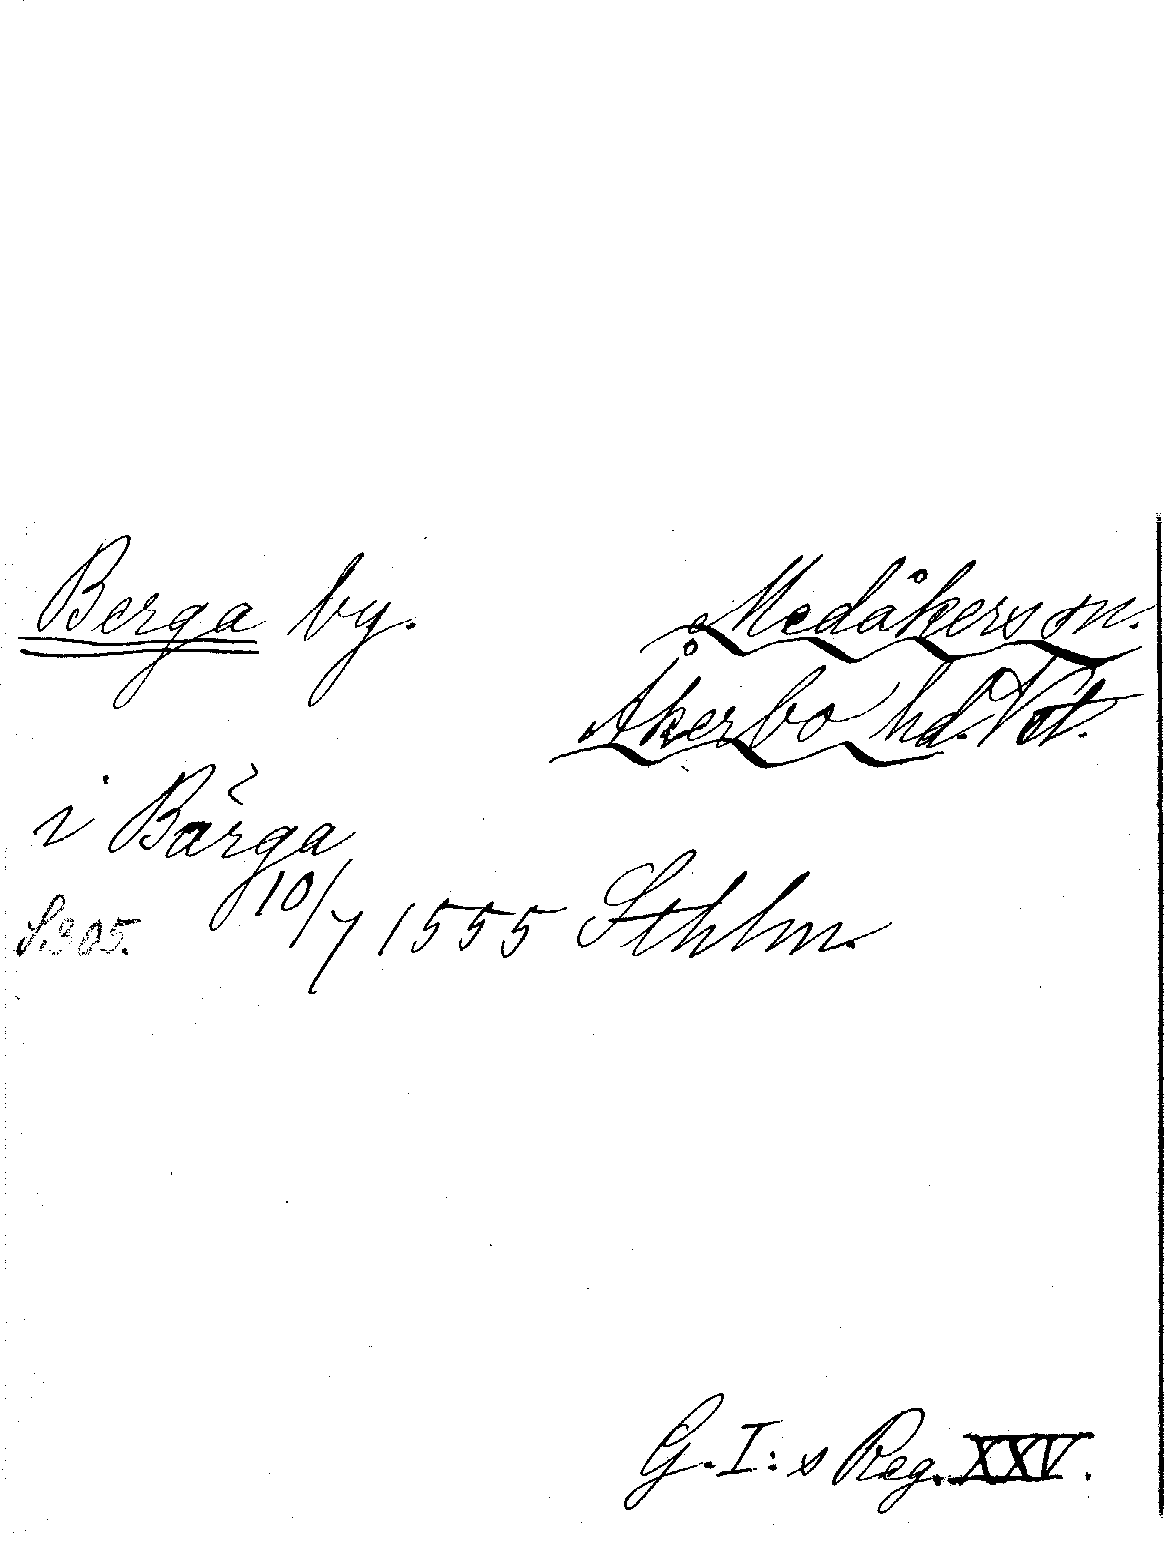 Berga by.
Medåkers sn.
Åkerbo hd. Vstm.
i Bärga
S. 305. 10/7 1555 Sthlm.
G. I:s Reg. XXV.